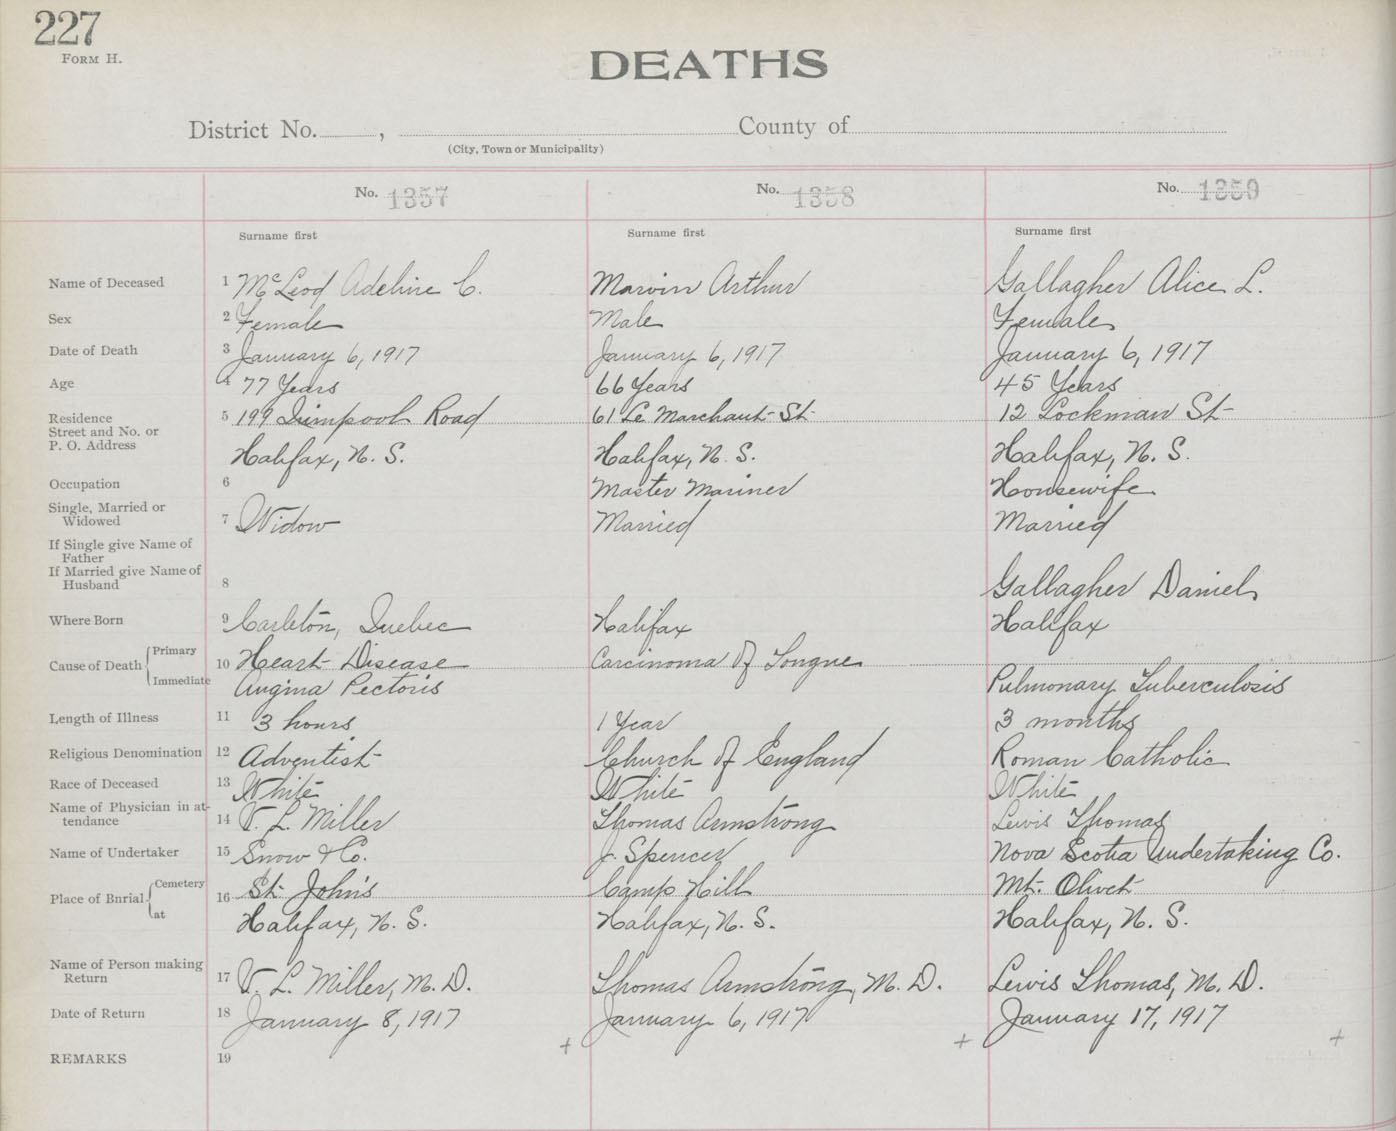 227
FORM H.
DEATHS
District No. , County of
(City, Town or Municipality)
No. 1357 No. 1358 No. 1359
Surname first Surname first Surname first
Name of Deceased 1 McLeod Adeline C. Marvin Arthur Gallagher Alice L.
Sex 2 Female Male Female
Date of Death 3 January 6, 1917 January 6, 1917 January 6, 1917
Age 4 77 Years 66 Years 45 Years
Residence 5 199 Road 61 Le Marchant St 12 Lockman St
Street and No. or
P. O. Address Halifax, N. S. Halifax, N. S. Halifax, N. S.
Occupation 6 Master Mariner Housewife
Single, Married or
Widowed 7 Widow Married Married
If Single give Name of
Father
If Married give Name of
Husband 8 Gallagher Daniel
Where Born 9 Carleton, Quebec Halifax Halifax
Cause of Death Primary 10 Heart Disease Carcinoma of Tongue
Immediate Angina Pectoris Pulmonary Tuberculosis
Length of Illness 11 3 hours 1 Year 3 months
Religious Denomination 12 Adventist Church of England Roman Catholic
Race of Deceased 13 White White White
Name of Physician in at-
tendance 14 V. L. Miller Thomas Armstrong Lewis Thomas
Name of Undertaker 15 Snow & Co. J. Spencer Nova Scotia Undertaking Co.
Place of Burial Cemetery 16 St. John's Camp Hill Mt. Olivet
at Halifax, N. S. Halifax, N. S. Halifax, N. S.
Name of Person making
Return 17 V. L. Miller, M. D. Thomas Armstrong, M. D. Lewis Thomas, M. D.
Date of Return 18 January 8, 1917 January 6, 1917 January 17, 1917
+ + +
REMARKS 19